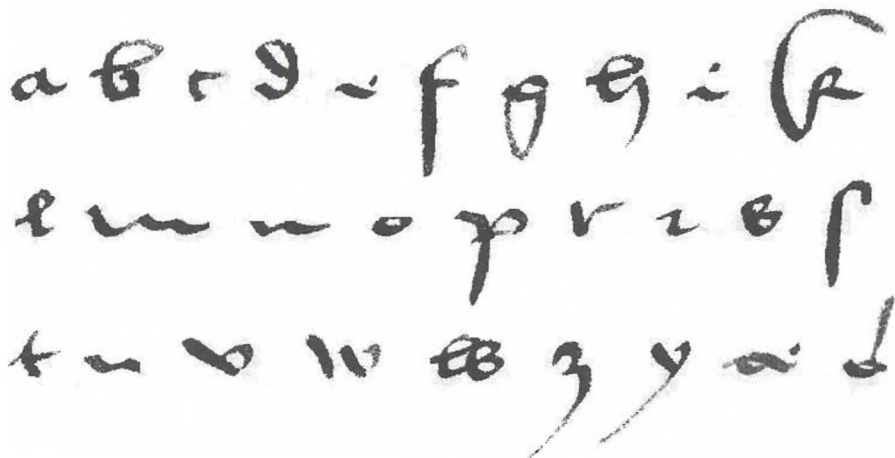 a b c d e f g h i k
l m n o p r ꝛ s ſ
t u v w w z y